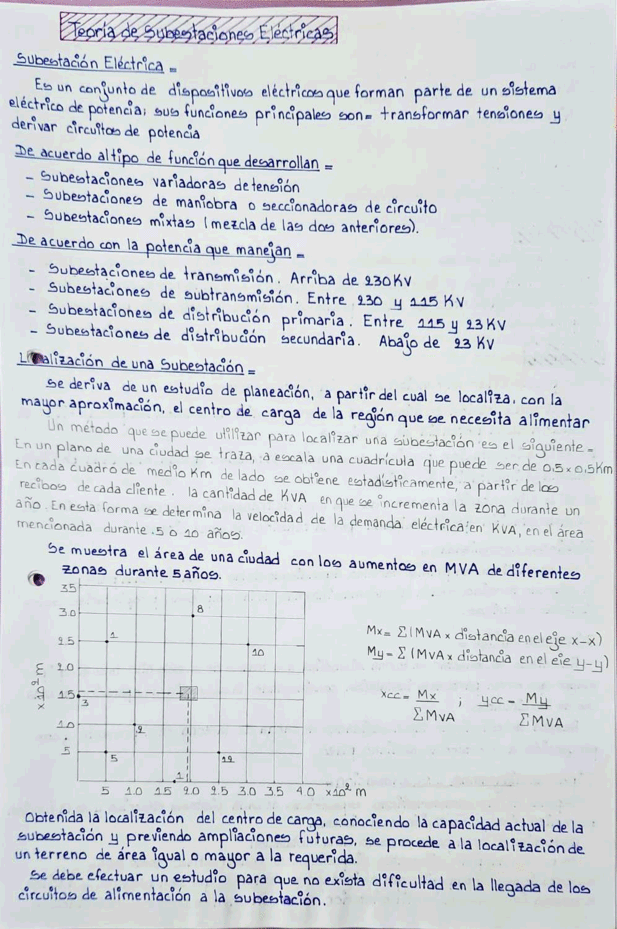 Teoría de Subestaciones Eléctricas
Subestación Eléctrica =
Es un conjunto de dispositivos eléctricos que forman parte de un sistema
eléctrico de potencia; sus funciones principales son= transformar tensiones y
derivar circuitos de potencia
De acuerdo al tipo de función que desarrollan =
- Subestaciones variadoras de tensión
- Subestaciones de maniobra o seccionadoras de circuito
- Subestaciones mixtas (mezcla de las dos anteriores).
De acuerdo con la potencia que manejan =
- Subestaciones de transmisión. Arriba de 230KV
- Subestaciones de subtransmisión. Entre 230 y 115 KV
- Subestaciones de distribución primaria. Entre 115 y 23 KV
- Subestaciones de distribución secundaria. Abajo de 23 KV
Localización de una Subestación =
Se deriva de un estudio de planeación, a partir del cual se localiza, con la
mayor aproximación, el centro de carga de la región que se necesita alimentar
Un método que se puede utilizar para localizar una subestación es el siguiente=
En un plano de una ciudad se traza, a escala una cuadrícula que puede ser de 0.5 x 0.5Km
En cada cuadro de medio Km de lado se obtiene estadísticamente, a partir de los
recibos de cada cliente, la cantidad de KVA en que se incrementa la zona durante un
año. En esta forma se determina la velocidad de la demanda eléctrica en KVA, en el área
mencionada durante 5 o 10 años.
Se muestra el área de una ciudad con los aumentos en MVA de diferentes
zonas durante 5 años.
35
30
25
20
15
10
5
x10² m
8
1
10
3
2
5
12
1
5 10 15 20 25 30 35 40 x10² m
Mx= Σ(MVA x distancia en el eje x-x)
My= Σ (MVA x distancia en el eje y-y)
xcc= Mx / ΣMVA ; ycc= My / ΣMVA
Obtenida la localización del centro de carga, conociendo la capacidad actual de la
subestación y previendo ampliaciones futuras, se procede a la localización de
un terreno de área igual o mayor a la requerida.
Se debe efectuar un estudio para que no exista dificultad en la llegada de los
circuitos de alimentación a la subestación.